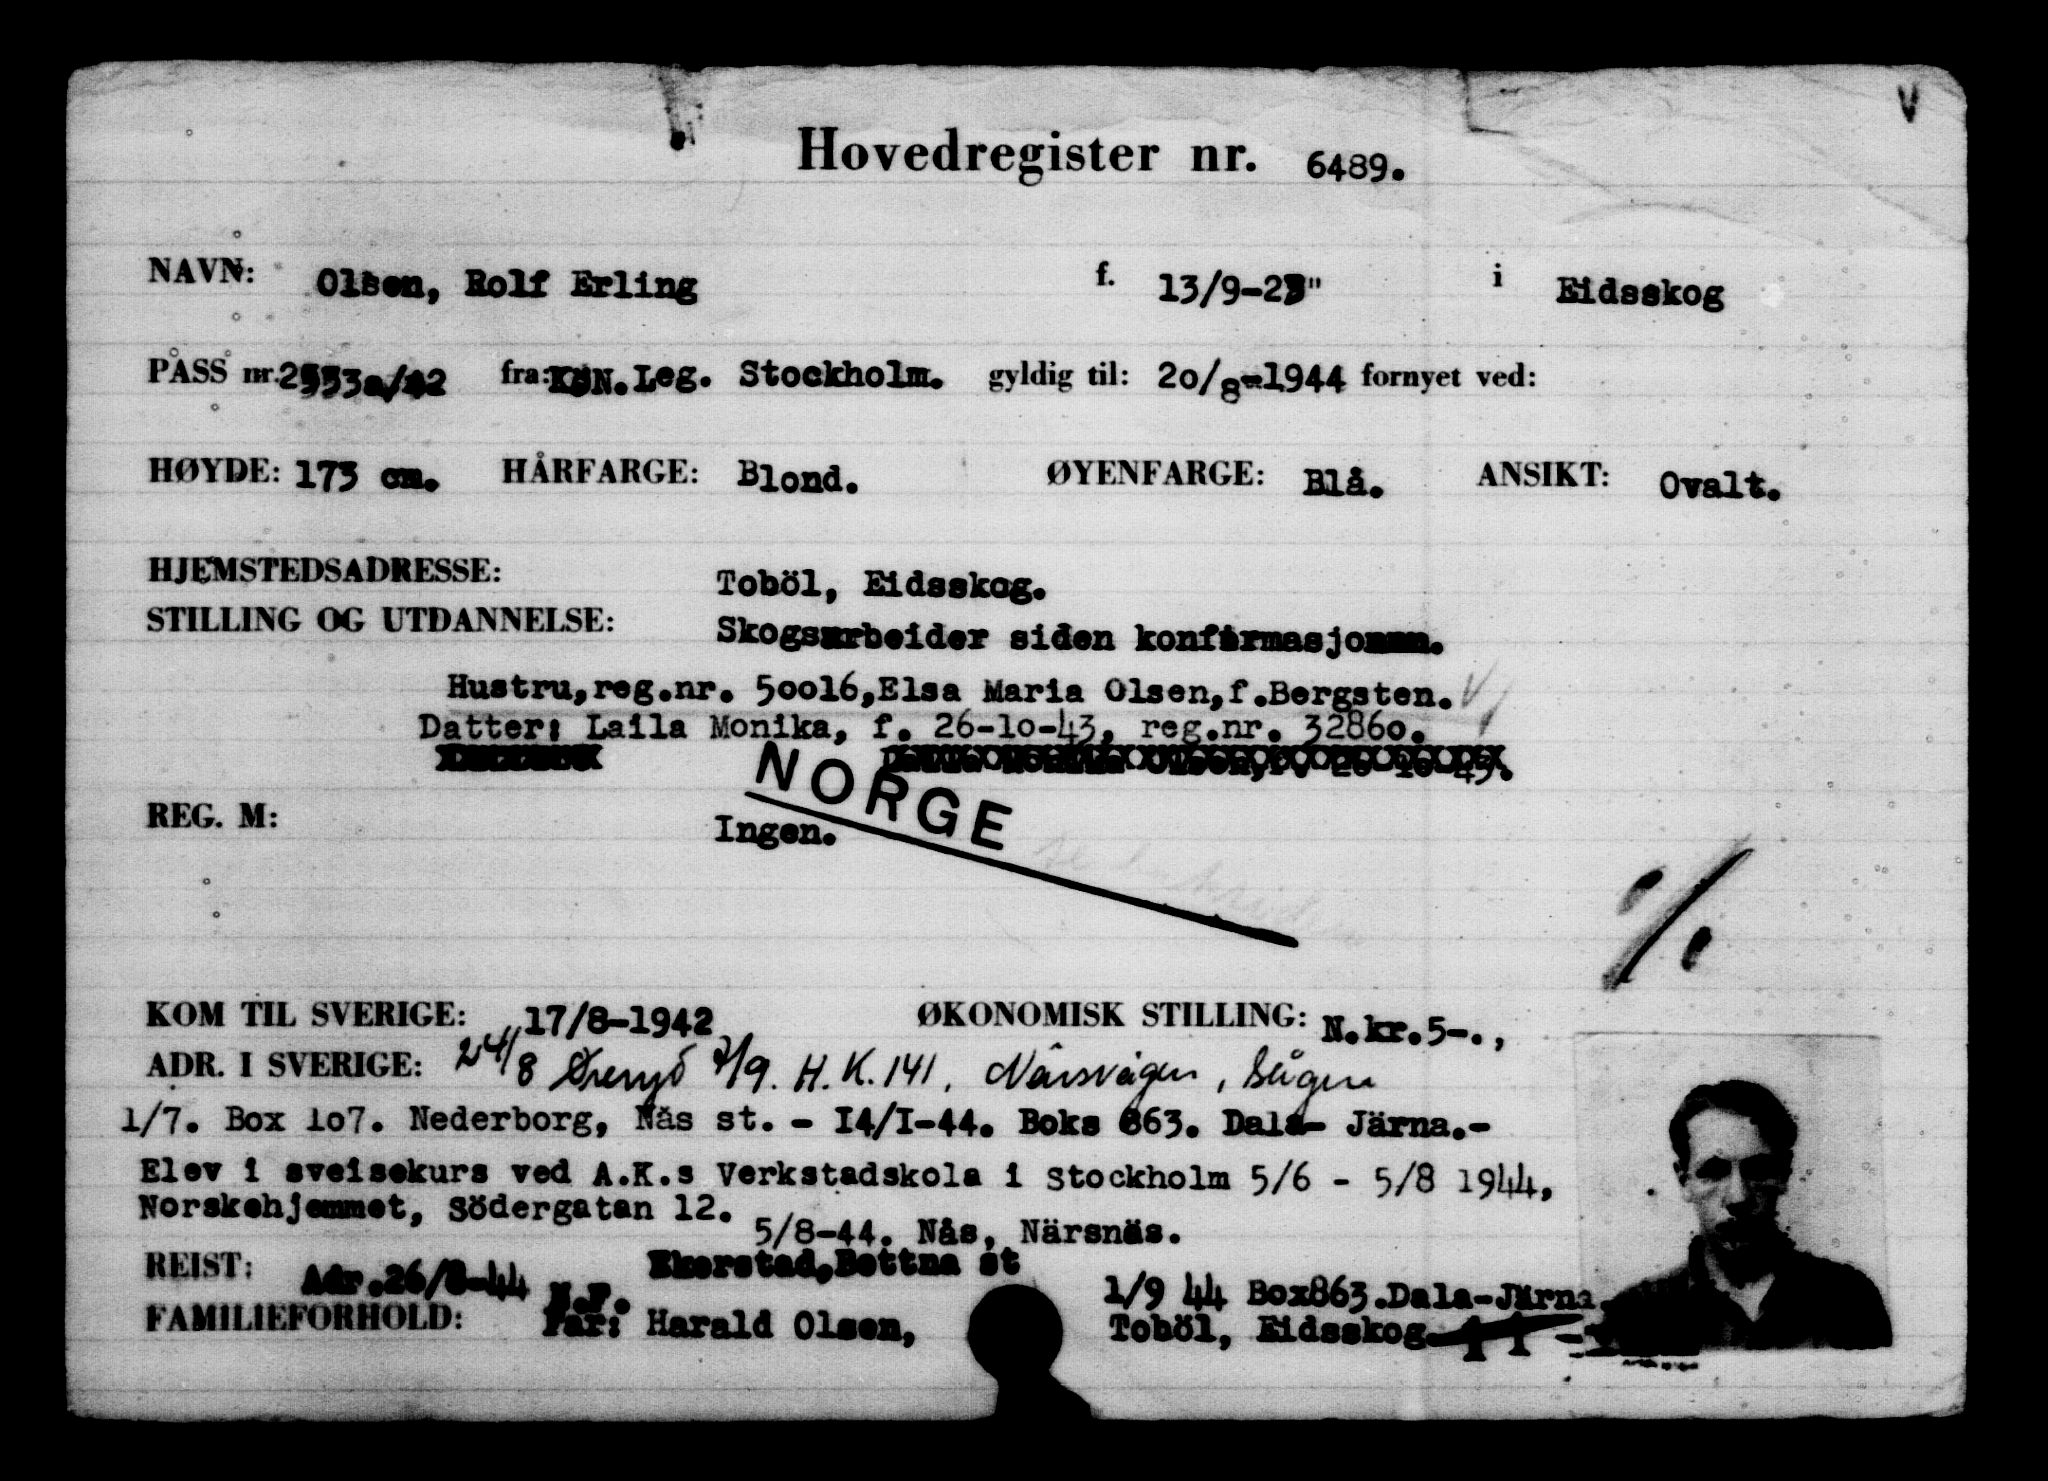 V
Hovedregister nr. 6489.
NAVN: Olsen, Rolf Erling f. 13/9-23" i Eidsskog
PASS nr. 2533a/42 fra: KGN.Leg. Stockholm. gyldig til: 20/8-1944 fornyet ved:
HØYDE: 173 cm. HÅRFARGE: Blond. ØYENFARGE: Blå. ANSIKT: Ovalt.
HJEMSTEDSADRESSE: Toböl, Eidsskog.
STILLING OG UTDANNELSE: Skogsarbeider siden konfirmasjonen.
Hustru,reg.nr. 50016,Elsa Maria Olsen,f.Bergsten. V
Datter: Laila Monika, f. 26-10-43, reg.nr. 32860.
NORGE
REG. M: Ingen.
KOM TIL SVERIGE: 17/8-1942 ØKONOMISK STILLING: N.kr.5-.,
ADR. I SVERIGE: 24/8 Öreryd /9. H.K.141,
1/7. Box 107. Nederborg, Näs st. - 14/I-44. Boks 863. Dala- Järna.-
Elev i sveisekurs ved A.K.s Verkstadskola i Stockholm 5/6 - 5/8 1944,
Norskehjemmet, Södergatan 12.
5/8-44. Nås, Närsnäs.
REIST: Adr.26/8-44 Ekerstad,Bettna st
1/9 44 Box863.Dala-Järna.
FAMILIEFORHOLD: Far: Harald Olsen, Toböl, Eidsskog.